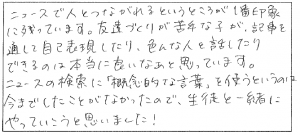 ニュースで人とつながれるというところが1番印象
に残っています。友達づくりが苦手な子が、記事を
通して自己表現したり、色んな人と話したり
できるのは本当に良いなあと思っています。
ニュースの検索に「概念的な言葉」を使うというのは
今までしたことがなかったので、生徒と一緒に
やっていこうと思いました！